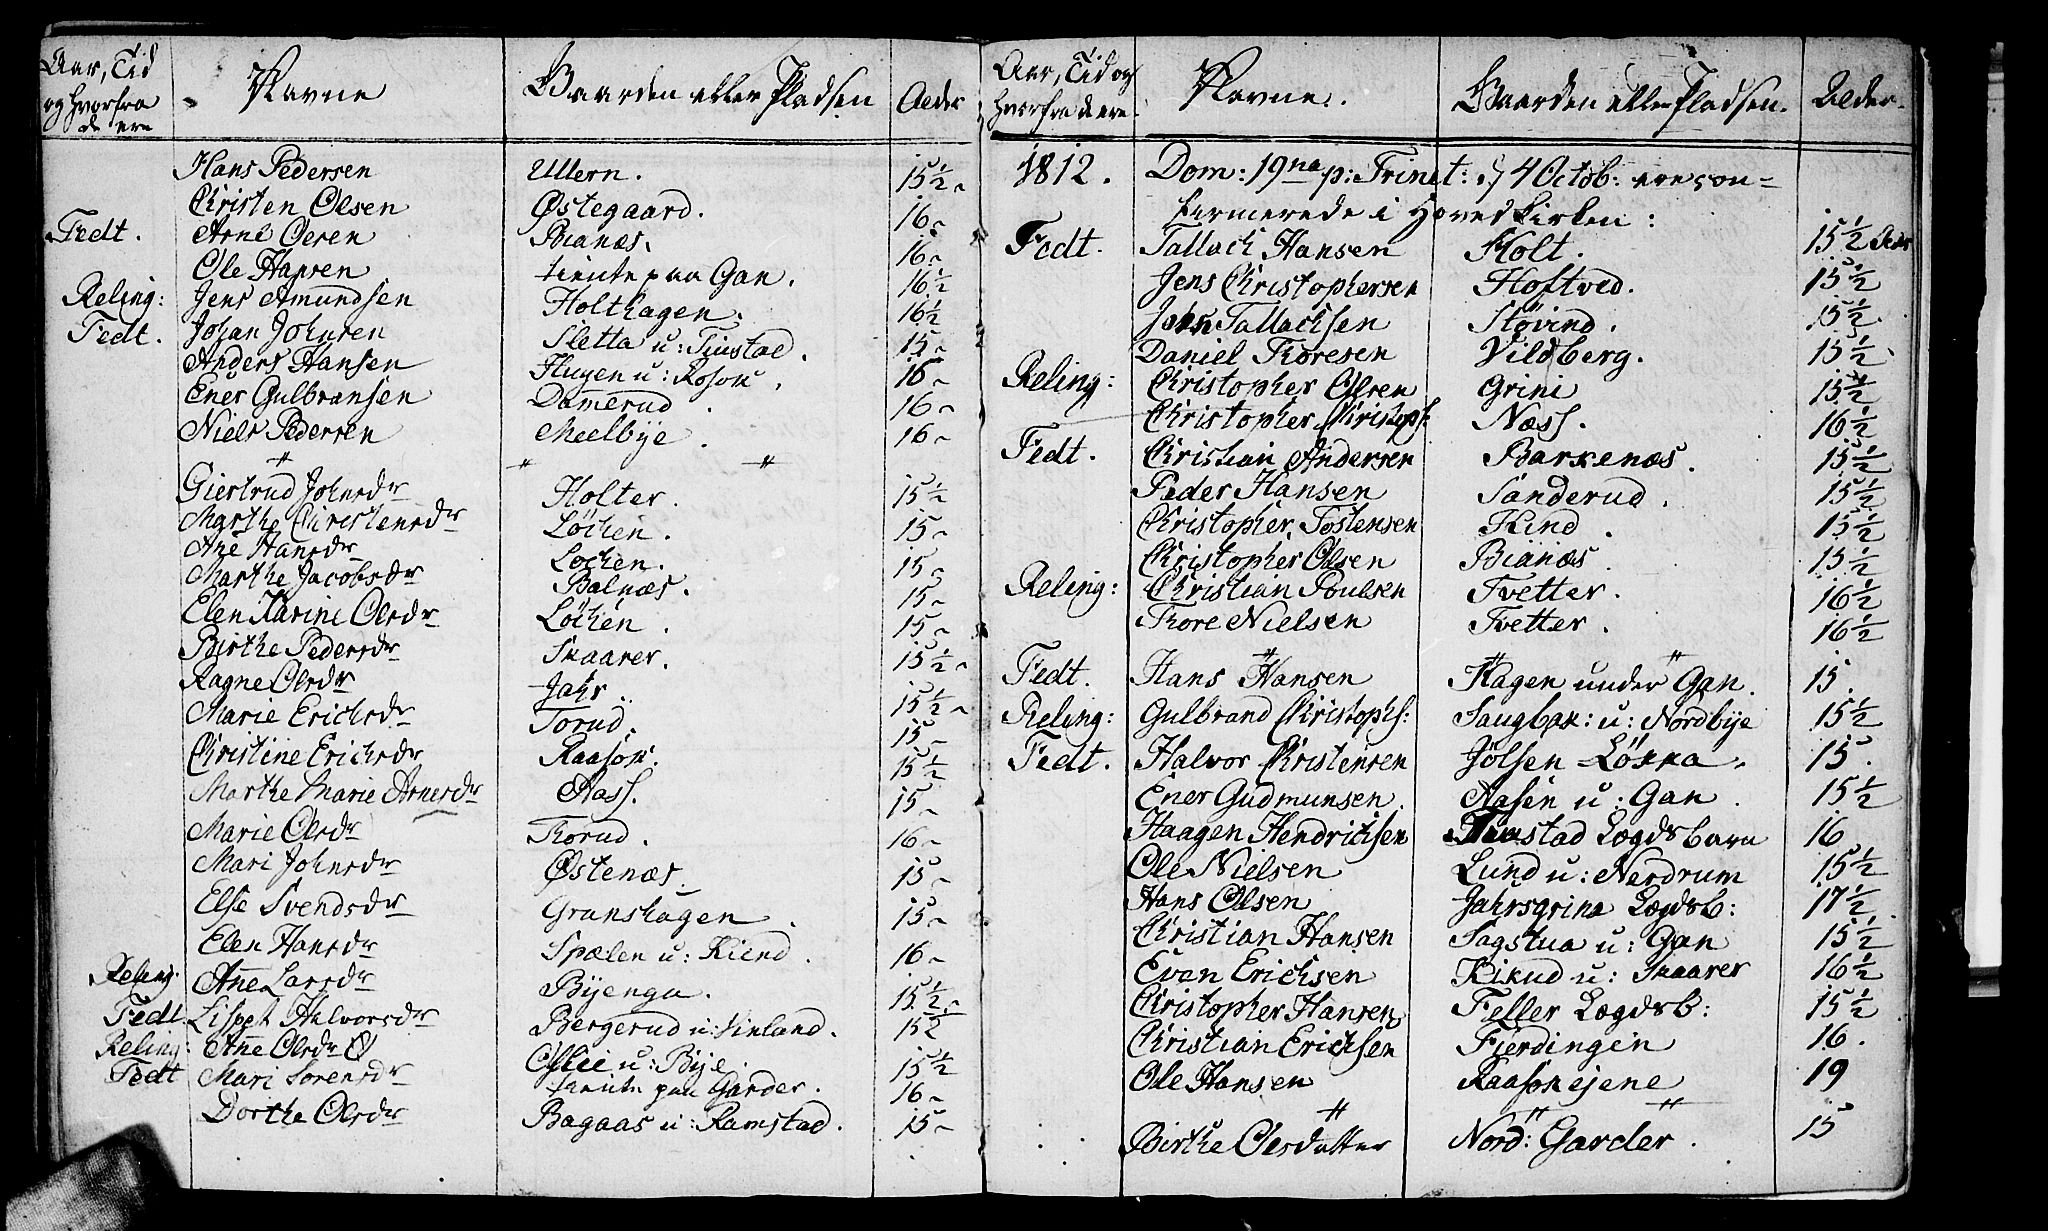 Aar, Tid og hvorfra de ere | Navne | Gaarden eller Pladsen | Alder
Hans Pedersen | Ullern. | 15½
Christen Olsen | Østegaard. | 16
Fedt. | Arne Olsen | Bianæs. | 16
Ole Hansen | tiente paa Gan. | 16½
Reling: | Jens Amundsen | Holthagen. | 16½
Fedt. | Johan Johnsen | Sletta u: Tiustad. | 15
Anders Hansen | Hugen u: Rosok. | 16
Ener Gulbransen | Damerud. | 16
Niels Pedersen | Meelbye. | 16
Giertrud Johnsdr | Holter. | 15½
Marthe Christensdr | Løchen. | 15
Ane Hansdr | Lochen. | 15
Marthe Jacobsdr | Balnæs. | 15
Elen Karine Olsdr | Løchen. | 15
Birthe Pedersdr | Skaarer. | 15½
Ragne Olsdr | Jahr. | 15½
Marie Erichsdr | Torud. | 15
Christine Erichsdr | Raasok. | 15½
Marthe Marie Arnesdr | Aass. | 15
Marie Olsdr | Torud. | 16
Mari Johnsdr | Østenæs. | 15
Else Svendsdr | Granshagen. | 15
Elen Hansdr | Spælen u: Kiend. | 16
Reling. | Anne Larsdr | Byenga. | 15½
Fedt. | Lisbet Halvorsdr | Bergerud u: Finland. | 15½
Reling: | Anne Olsdr | Ollie u: Bye. | 15½
Fedt | Mari Sorensdr | tiente paa Garder. | 16
Dorthe Olsdr | Bagaas u: Ramstad. | 15
Aar, Tid og hvorfra de ere | Navne. | Gaarden eller Pladsen. | Alder.
1812. | Dom: 19na p: Trinet: 4 Octob: ere con=
firmerede i Hovedkirken:
Fedt. | Tallach Hansen | Holt. | 15½ Aar
Jens Christophersen | Hoftved. | 15½
John Tallachsen | Støvind. | 15½
Daniel Thoresen | Vildberg. | 15½
Reling: | Christopher Olsen | Grini | 15½
Christopher Christophs: | Næss. | 16½
Fedt. | Christian Andersen | Barkenæs. | 15½
Peder Hansen | Sanderud. | 15½
Christopher Tostensen | Kind. | 15½
Christopher Olsen | Bianæs. | 15½
Reling: | Christian Poulsen | Tvetter. | 16½
Thore Nielsen | Tvetter. | 16½
Fedt. | Hans Hansen | Hagen under Gan. | 15.
Reling: | Gulbrand Christophs: | Saugbak: u: Nordbye | 15½
Fedt. | Halvor Christensen | Jølsen Løkka. | 15.
Ener Gudmunsen. | Aasen u: Gan. | 15½
Haagen Hendrichsen | Tiustad Lægdsbarn | 16
Ole Nielsen | Lund u: Nerdrum | 15½
Hans Olsen | Jahrsgrina Lægdsb: | 17½
Christian Hansen | Sagstua u: Gan | 15½
Even Erichsen | Kikud u: Skaarer | 16½
Christopher Hansen | Feller Lægdsb: | 15½
Christian Erichsen | Fierdingen | 16.
Ole Hansen | Raasokejene | 19
Birthe Olsdatter | Nord: Garder. | 15